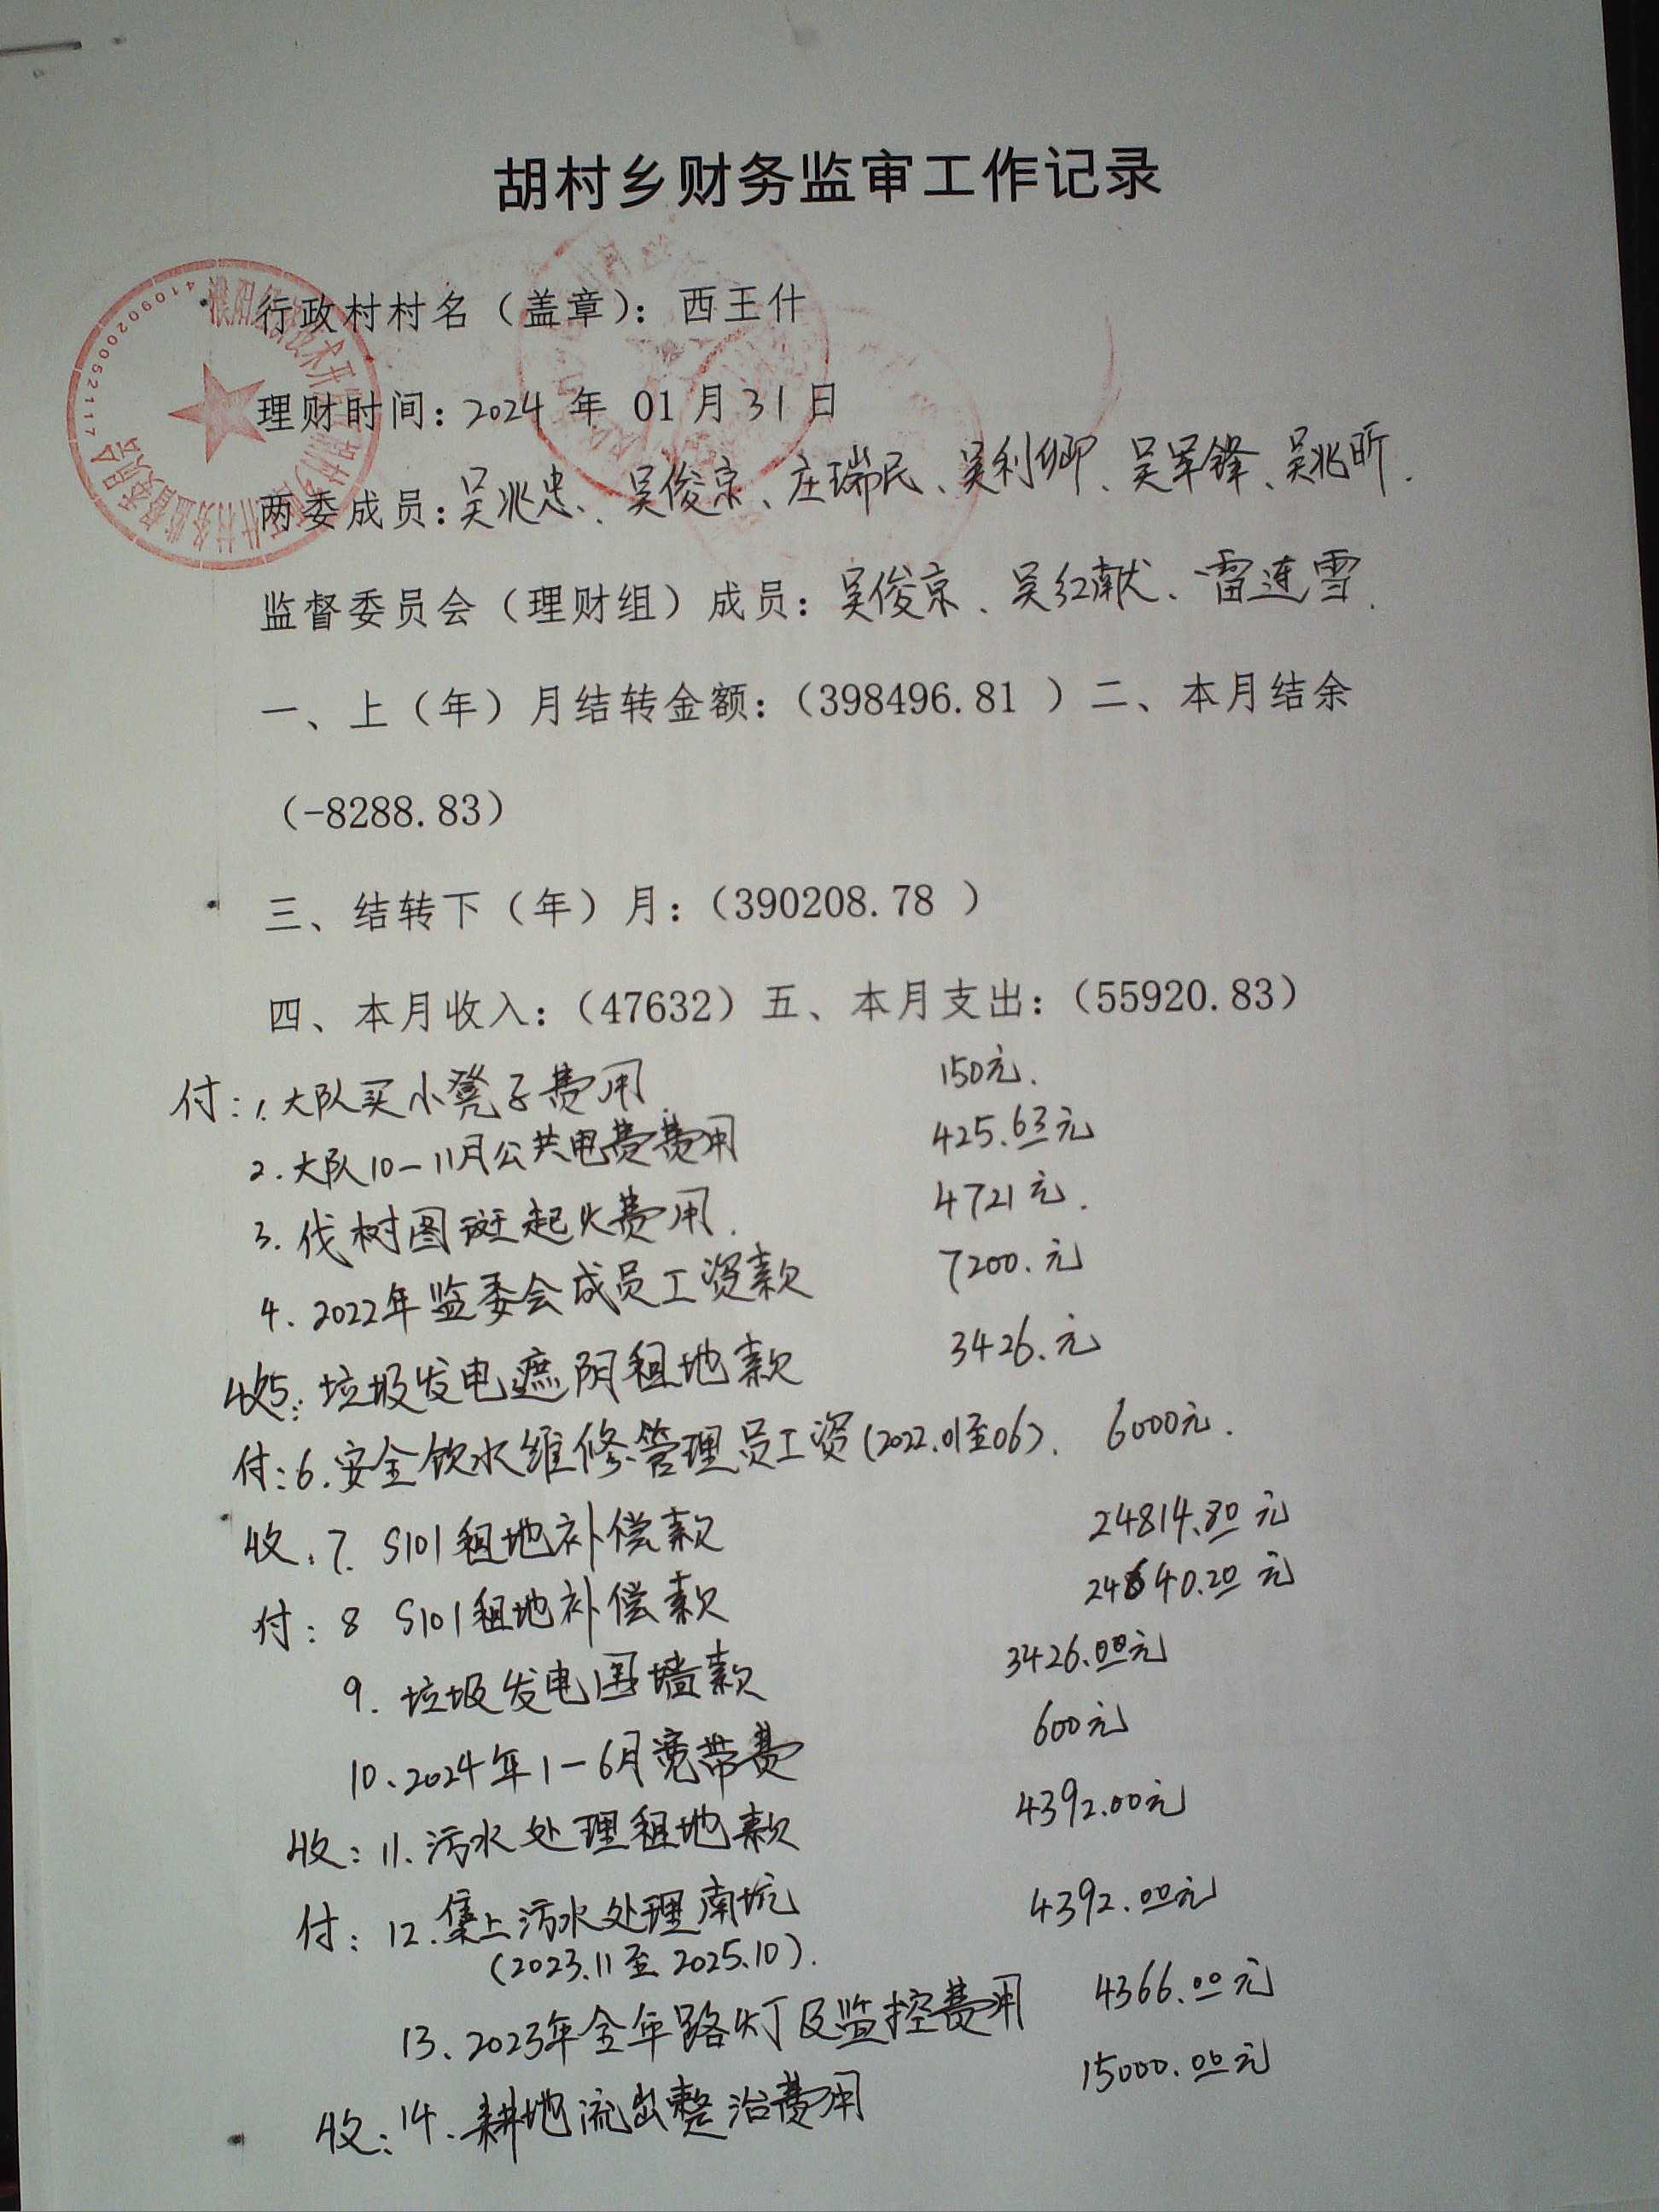 胡村乡财务监审工作记录
行政村村名（盖章）：西王什
理财时间：2024 年 01 月 31 日
两委成员：吴兆忠、吴俊京、庄瑞民、吴利卿、吴军锋、吴兆昕.
监督委员会（理财组）成员：吴俊京、吴红献、雷连雪.
一、上（年）月结转金额：（398496.81 ）二、本月结余
（-8288.83）
三、结转下（年）月：（390208.78 ）
四、本月收入：（47632）五、本月支出：（55920.83）
付：1.大队买小凳子费用. 150元.
2.大队10-11月公共电费费用 425.63元
3.伐树图斑起火费用. 4721元.
4.2022年监委会成员工资款 7200.元
收5：垃圾发电遮阴租地款 3426.元
付：6.安全饮水维修管理员工资(2022.01至06). 6000元.
收：7. S101租地补偿款 24814.80元
付：8 S101租地补偿款 24640.20元
9.垃圾发电围墙款 3426.00元
10、2024年1-6月宽带费 600元
收：11.污水处理租地款 4392.00元
付：12.集上污水处理南坑 4392.00元
(2023.11至2025.10).
13、2023年全年路灯及监控费用 4366.00元
收：14.耕地流出整治费用 15000.00元
4109020052117